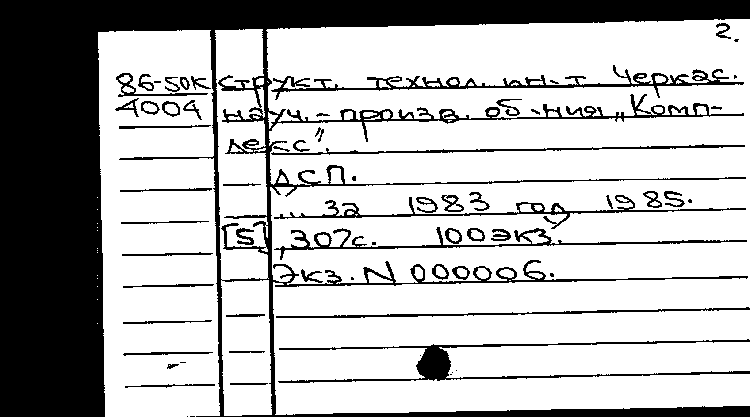 2.
86-50К структ. технол. ин-т Черкас.
4004 науч.-произв. об-ния „Комп-
лекс".
ДСП.
... за 1983 год 1985.
[5], 307с. 100экз.
Экз. N 000006.